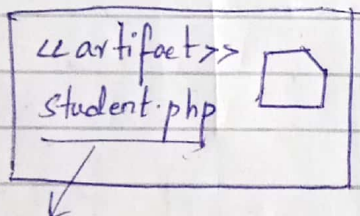 <<artifact>>
student.php